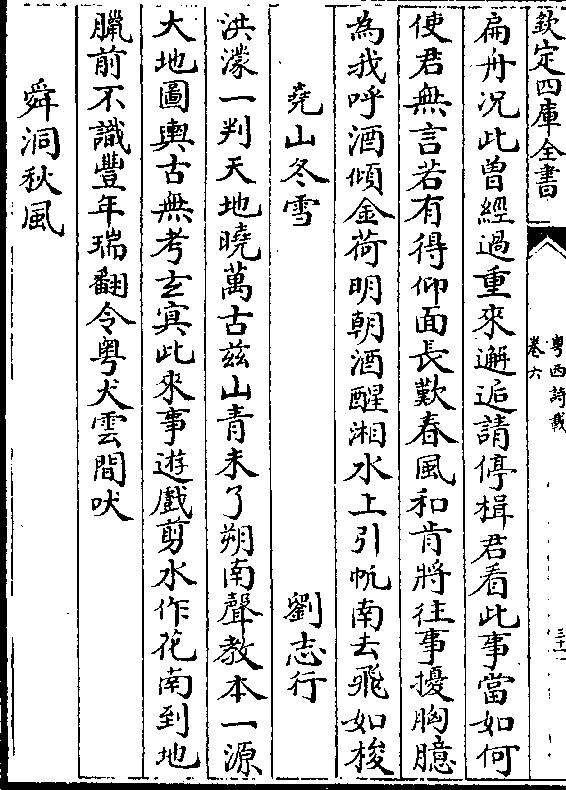 欽定四庫全書
粤西詩載
卷六
扁舟况此曽經過重來邂逅請停楫君看此事當如何
使君無言若有得仰面長歎春風和肯將往事擾胸臆
為我呼酒傾金荷明朝酒醒湘水上引帆南去飛如梭
堯山冬雪 劉志行
洪濛一判天地曉萬古兹山青未了朔南聲教本一源
大地圖輿古無考玄冥此來事遊戲剪水作花南到地
臘前不識豐年瑞翻令粤犬雲間吠
舜洞秋風